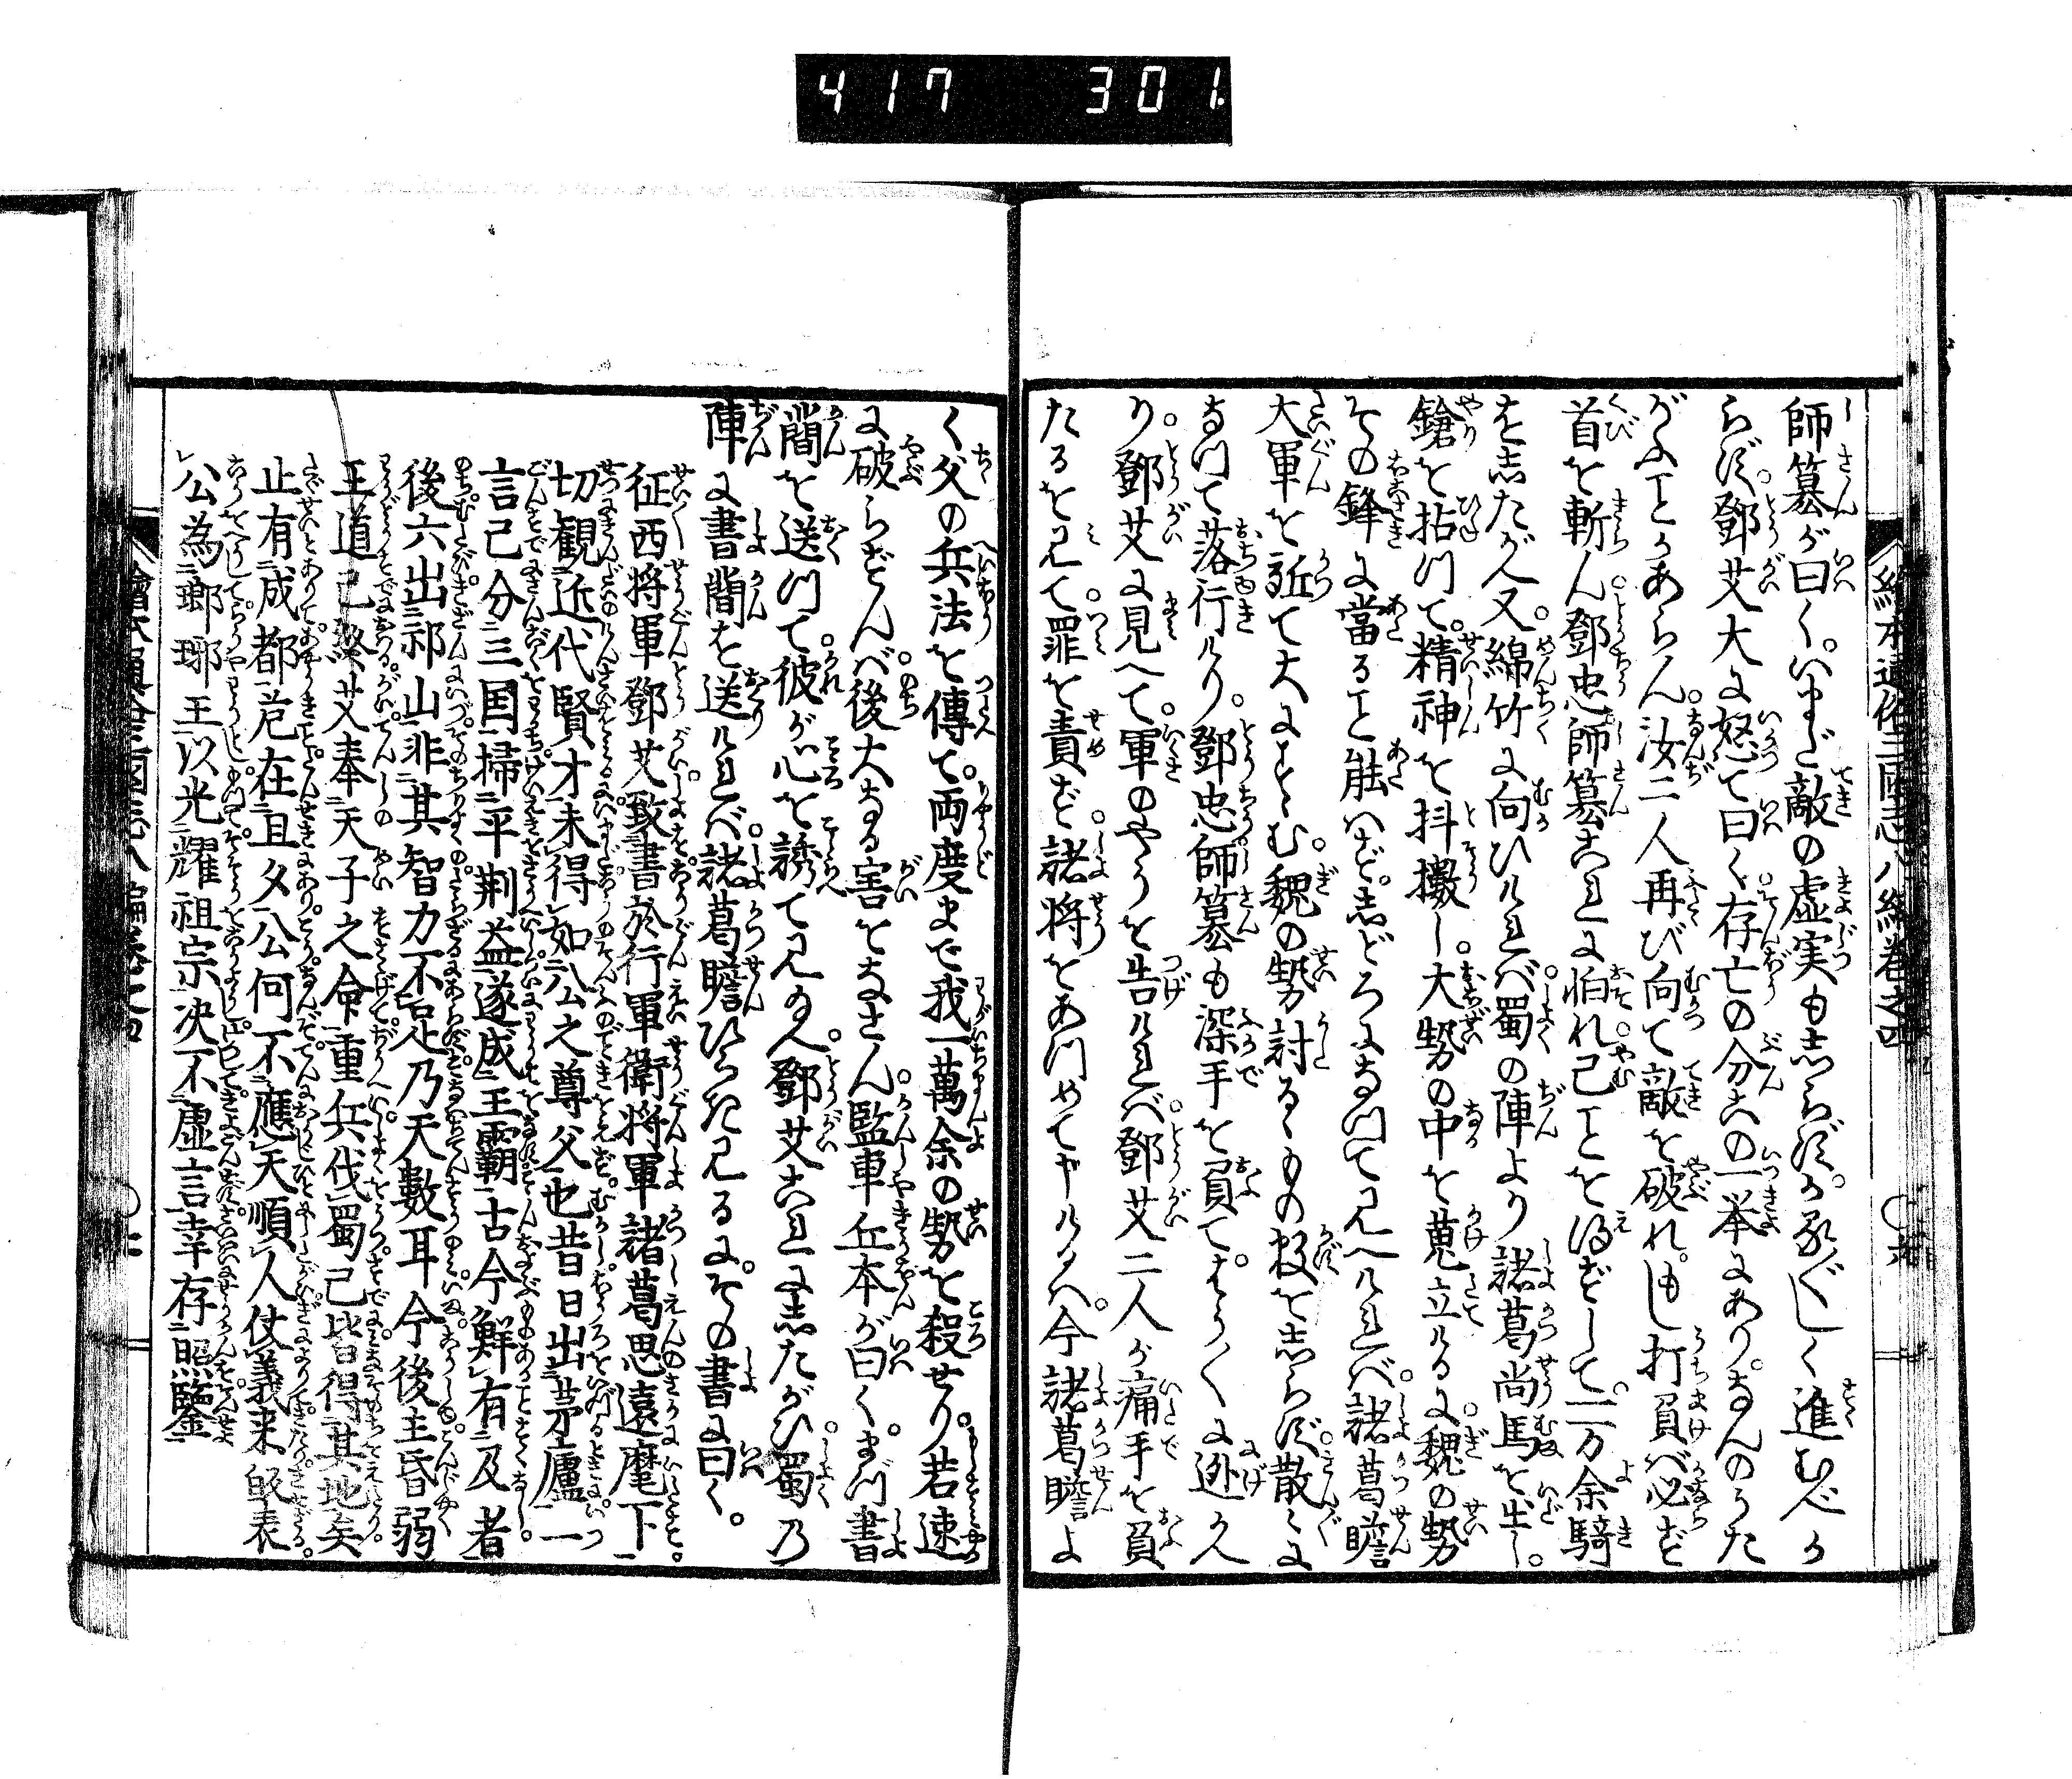 417 301
繪本通俗三國志八編巻之四
師纂が曰く。いまだ敵の虚実も志らず。か永がしく進むべか
らず。鄧艾大に怒て曰く。存亡の分この一挙にあり。なんのうた
がふことかあらん。汝二人再び向て敵を破れ。もし打負ば必ず
首を斬ん。鄧忠師纂これに怕れ。已ことを得ずして。一万余騎
を志たがへ又。綿竹に向ひければ。蜀の陣より諸葛尚馬を出し。
鎗を拈つて。精神を抖擻し。大勢の中を蒐立けるに。魏の勢
その鋒に當ること能はず。志どろになつて見へければ。諸葛瞻
大軍を駈て大にすゝむ。魏の勢討るゝもの数を志らず。散々に
なつて落行けり。鄧忠師纂も深手を負て。はう〳〵に逃かへ
り。鄧艾に見へて。軍のやうを告ければ。鄧艾二人が痛手を負
たるを見て罪を責ず。諸将をあつめて申けるハ。今諸葛瞻よ
く父の兵法を傳て。両度まで我一萬余の勢を殺せり。若速
に破らずんば。後大なる害をなさん。監軍丘本が曰く。まづ書
簡を送つて。彼が心を誘て見給へ。鄧艾これに志たがひ。蜀乃
陣に書簡を送ければ。諸葛瞻ひらき見るに。その書に曰く。
征西将軍鄧艾致書於行軍衛将軍諸葛思遠麾下
切観近代賢才未得如公之尊父也昔日出茅廬一
言已分三国掃平荊益遂成王霸古今鮮有及者
後六出祁山非其智力不足乃天數耳今後主昏弱
王道已終艾奉天子之命重兵伐蜀已皆得其地矣
止有成都危在旦夕公何不應天順人仗義来皈表
公為瑯琊王以光耀祖宗决不虚言幸存照鑒